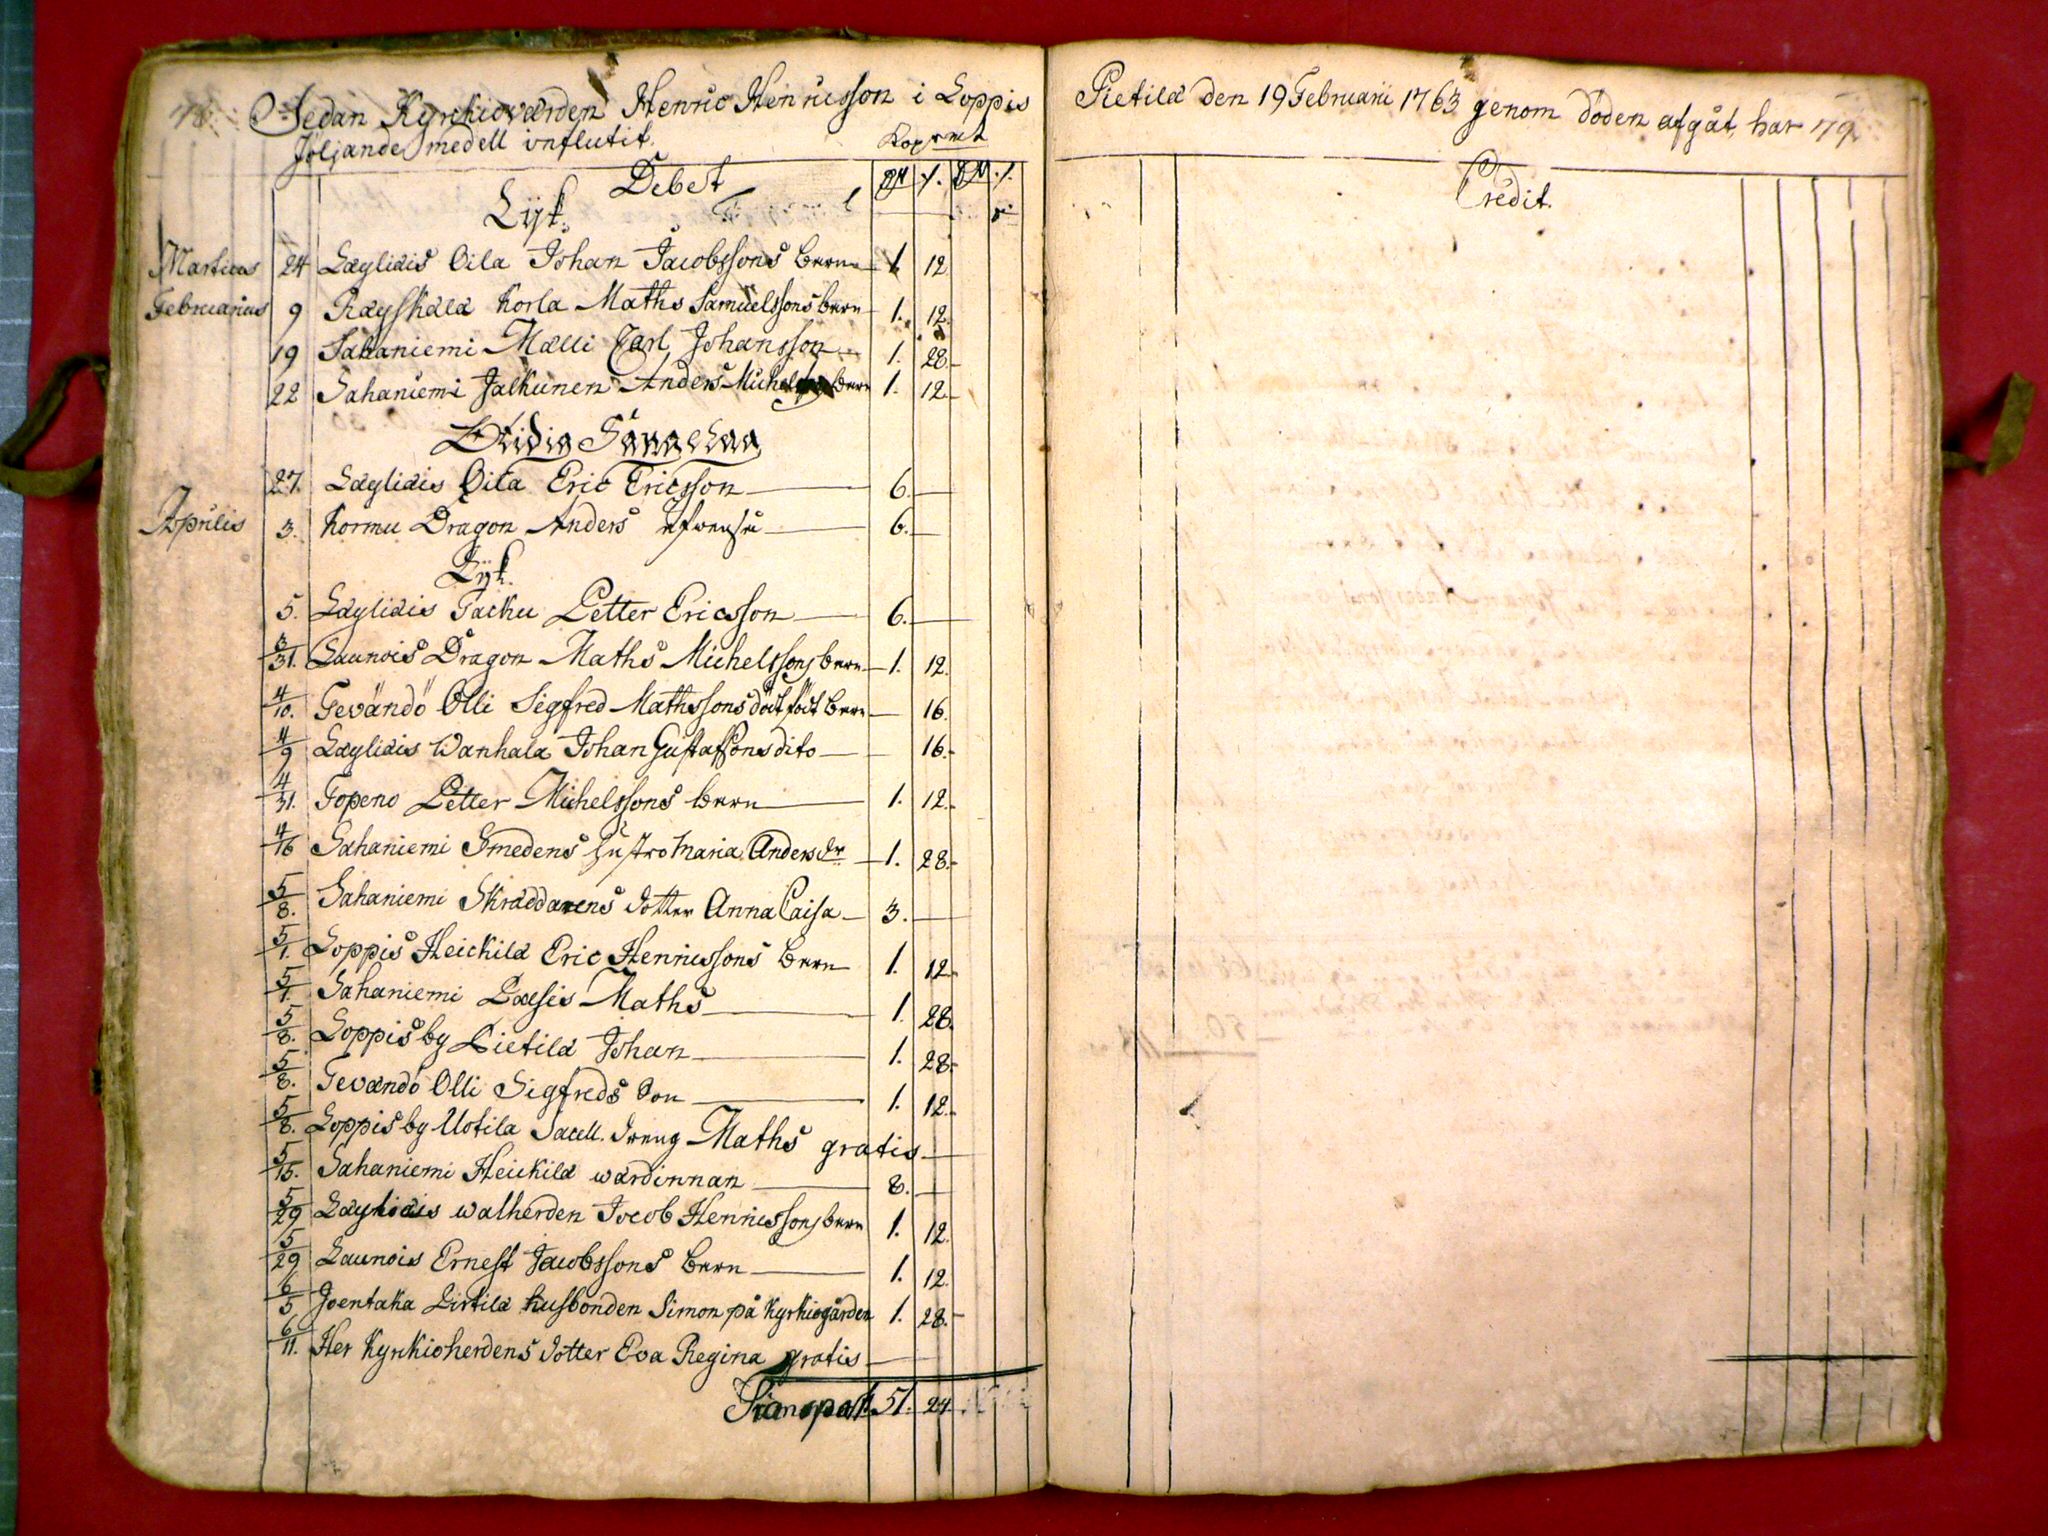 78. Sedan Kyrkiovärden Henric Henricsson i Loppis Pietilä den 19 Februarii 1763 genom döden afgåt, har 79.
följande medell influtit. Kopmt
Debet
Credit.
Lijk.
Martius 24 Läyliäis Oila Johan Jacobssons barn 1. 12
Februarius 9 Räyskälä Korla Maths Samuelssons barn 1. 12.
19 Sahaniemi Mälli Carl Johansson 1. 28.
22 Sahaniemi Jalkunen Anders barn 1. 12.
27. Läyliäis Oila Eric Ericsson 6.
Aprilis 3. Kormu Dragon Anders 6.
Lijk.
5. Läyliäis Tacku Petter Ericsson 6.
3/31. Launois Dragon Maths Michelssons barn 1. 12.
4/10. Tevändö Olli Sigfred Mathssons dödfödt barn 16.
4/9 Läyliäis Wanhala Johan Gustafssons dito 16.
4/31. Topeno Petter Michelssons barn 1. 12.
4/16 Sahaniemi Smedens hustro Maria Andersdr 1. 28.
5/8. Sahaniemi Skräddarens dotter Anna Caisa 3.
5/1. Loppis Heickilä Eric Henricssons barn 1. 12.
5/1. Sahaniemi Maths 1. 28.
5/8. Loppis by Pietilä Johan 1. 28.
5/8. Tevändö Olli Sigfreds Son 1. 12.
5/8. Loppis by Uotila Sacell. dreng Maths gratis
5/15. Sahaniemi Heickilä wärdinnan 8.
5/29 Läyliäis walherden Jacob Henricssons barn 1. 12.
5/29 Launois Ernest Jacobssons barn 1. 12.
6/5 Joentaka husbonden Simon på Kyrkiogården 1. 28.
6/11. Her Kyrkioherdens dotter Eva Regina gratis
Transport. 51. 24.